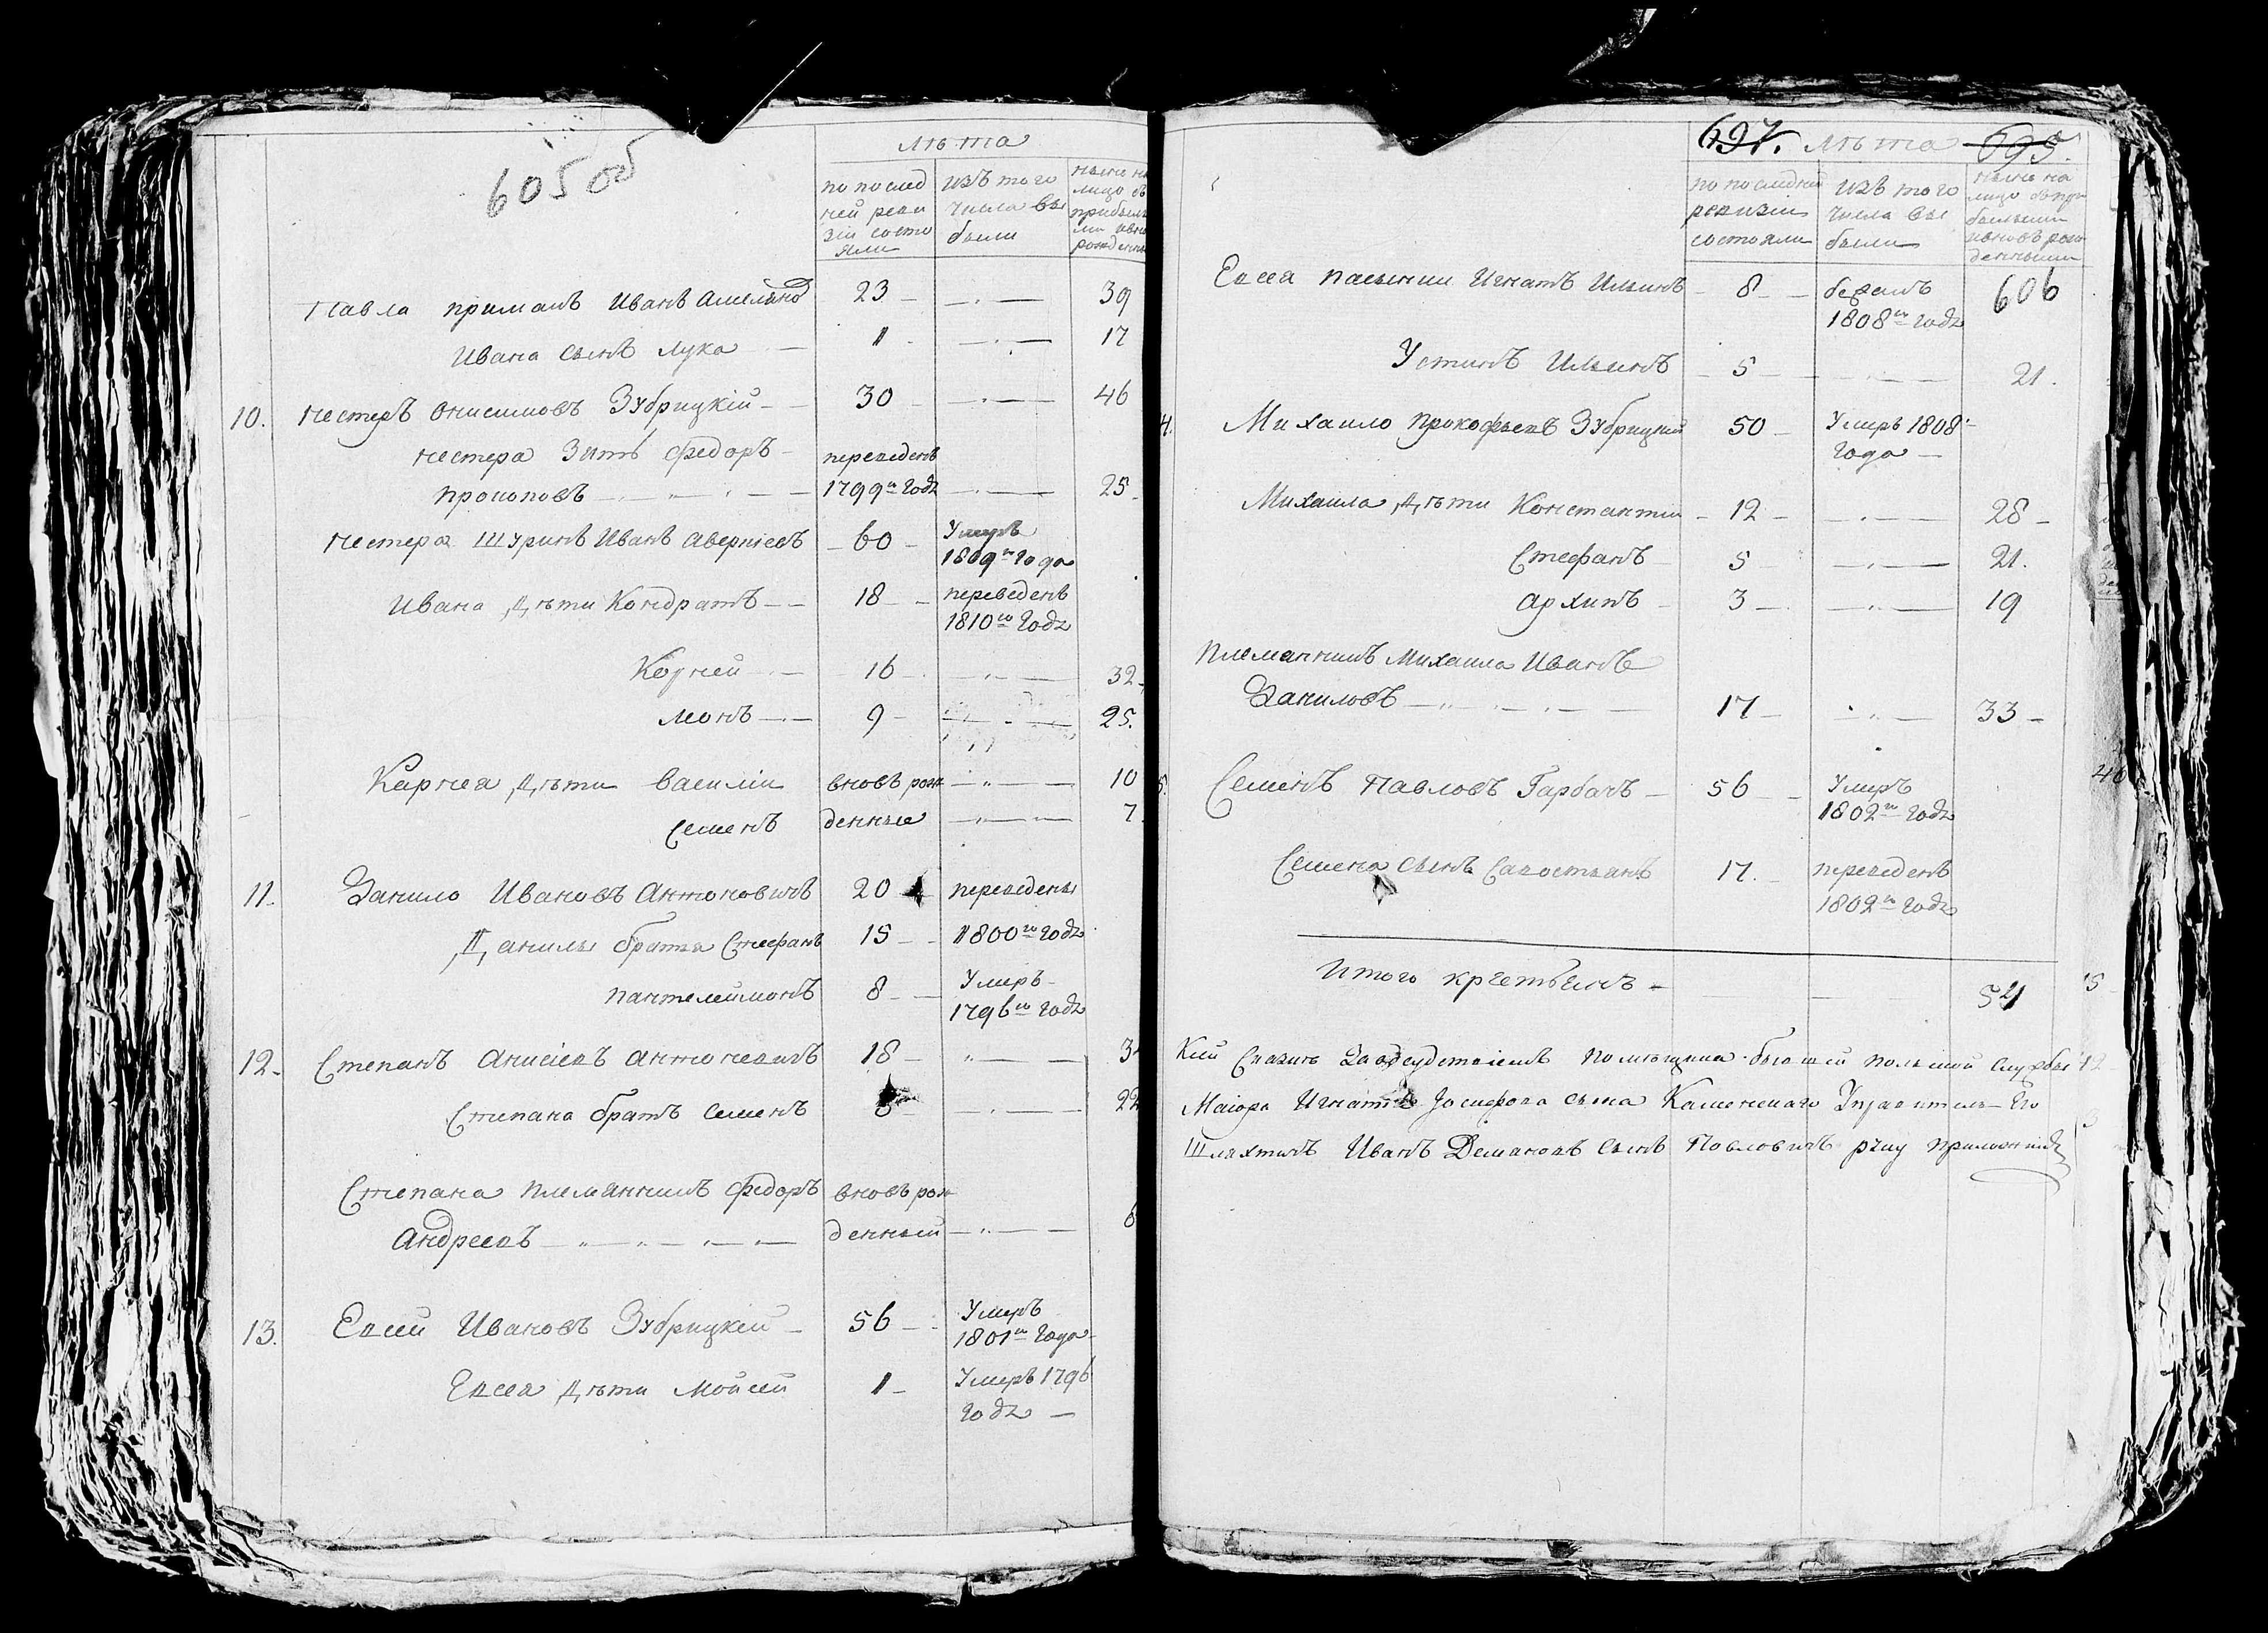 605 об
Лѣта
по послед изъ того ныне на
ней реви числа вы лицо съ
зіи состо были прибылы
яли ми и вно
рожденны
Павла примакъ Иванъ Амельяно 23 — 39
Ивана сынъ Лука 1 — 17
10. Нестеръ Онисимовъ Зубрицкій 30 — 46
Нестера Зять Федоръ переведенъ
Прокоповъ 1799го годa — 25
Нестера Шуринъ Иванъ Аверкіевъ 60 Умеръ
1809го года
Ивана Дѣти Кондратъ 18 переведенъ
1810го года
Корней 16 — 32
Леонъ 9 — 25.
Карнея Дѣти Василіи вновь рож — 10
Семенъ денные — 7
11. Данило Ивановъ Антоновичъ 20 переведены
Данилы братья Стефанъ 15 1800го года
Пантелеймонъ 8 Умеръ
1796го года
12. Степанъ Анисіевъ Антоневичъ 18 — 3
Степана братъ Семенъ — 22
Степана племянникъ Федоръ вновь рож
Андреевъ денный —
13. Евсей Ивановъ Зубрицкій 56 Умеръ
1801го года
Евсея Дѣти Мойсей 1 Умеръ 1796
года
697. Лѣта 695.
по последней изъ того ныне на
ревизіи числа вы лицо съ при
состояли были былыми
и вновь рож
денными
Евсея пасынки Игнатъ Ильинъ 8 бежалъ 606
1808го года
Устинъ Ильинъ 5 — 21.
4. Михайло Прокофьевъ Зубрицкій 50 Умеръ 1808
года
Михайла Дѣти Константин 12 — 28
Стефанъ 5 — 21.
Архипъ 3 — 19
Племянникъ Михайла Иванъ
Даниловъ 17 — 33
5. Семенъ Павловъ Гарбачъ 56 Умеръ
1802го года
Семена сынъ Савостьянъ 17. переведенъ
1802го года
Итого крестьянъ 54
Кий Сказкѣ За отсудствіемъ Помѣщика бывшей польской службы
Маіора Игнатія Іосифова сына Каменскаго Управитель Его
Шляхтичъ Иванъ Демановъ сынъ Павловичъ руку приложилъ